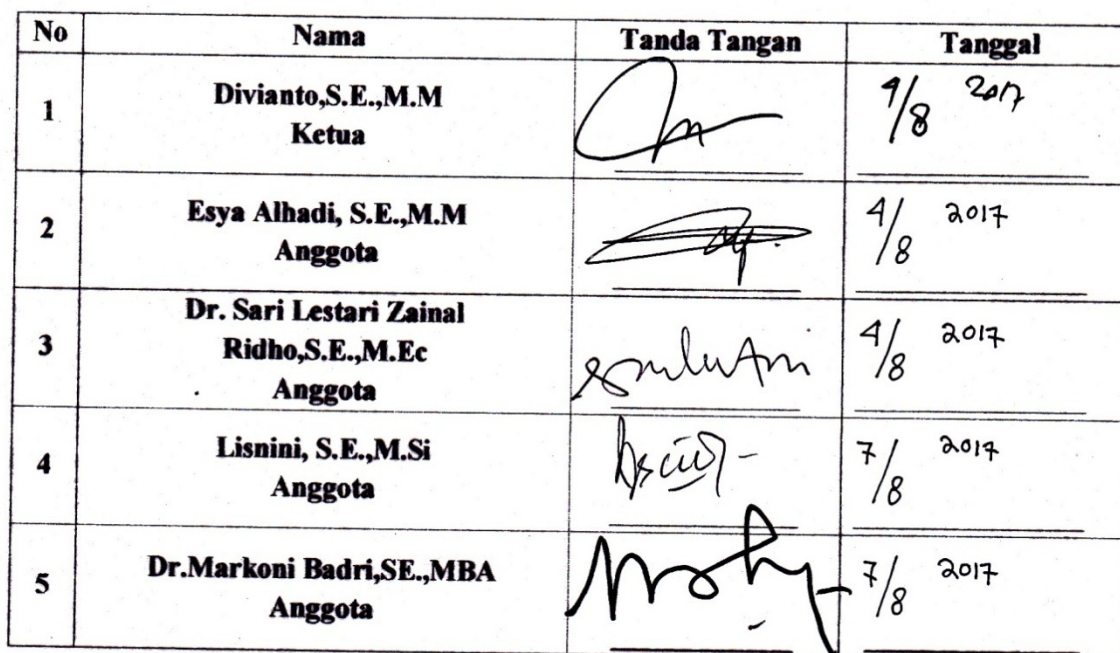 No Nama Tanda Tangan Tanggal
1 Divianto,S.E.,M.M
Ketua
4/8 2017
2 Esya Alhadi, S.E.,M.M
Anggota
4/8 2017
3 Dr. Sari Lestari Zainal
Ridho,S.E.,M.Ec
Anggota
4/8 2017
4 Lisnini, S.E.,M.Si
Anggota
7/8 2017
5 Dr.Markoni Badri,SE.,MBA
Anggota
7/8 2017